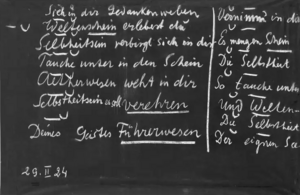 Sich in des Gedankenweben
Weltenschein erlebest du
Selbstsein verbirgt sich in dir
Tauche unter in den Schein
Ätherwesen weht in dir
Selbstheitsein soll verehren
Deines Geistes Führerwesen
29. II 24
in das
Es mengen Schein
Die Selbstheit
So tauche unter
Und Welten-
Die Selbstheit
Der eignen See